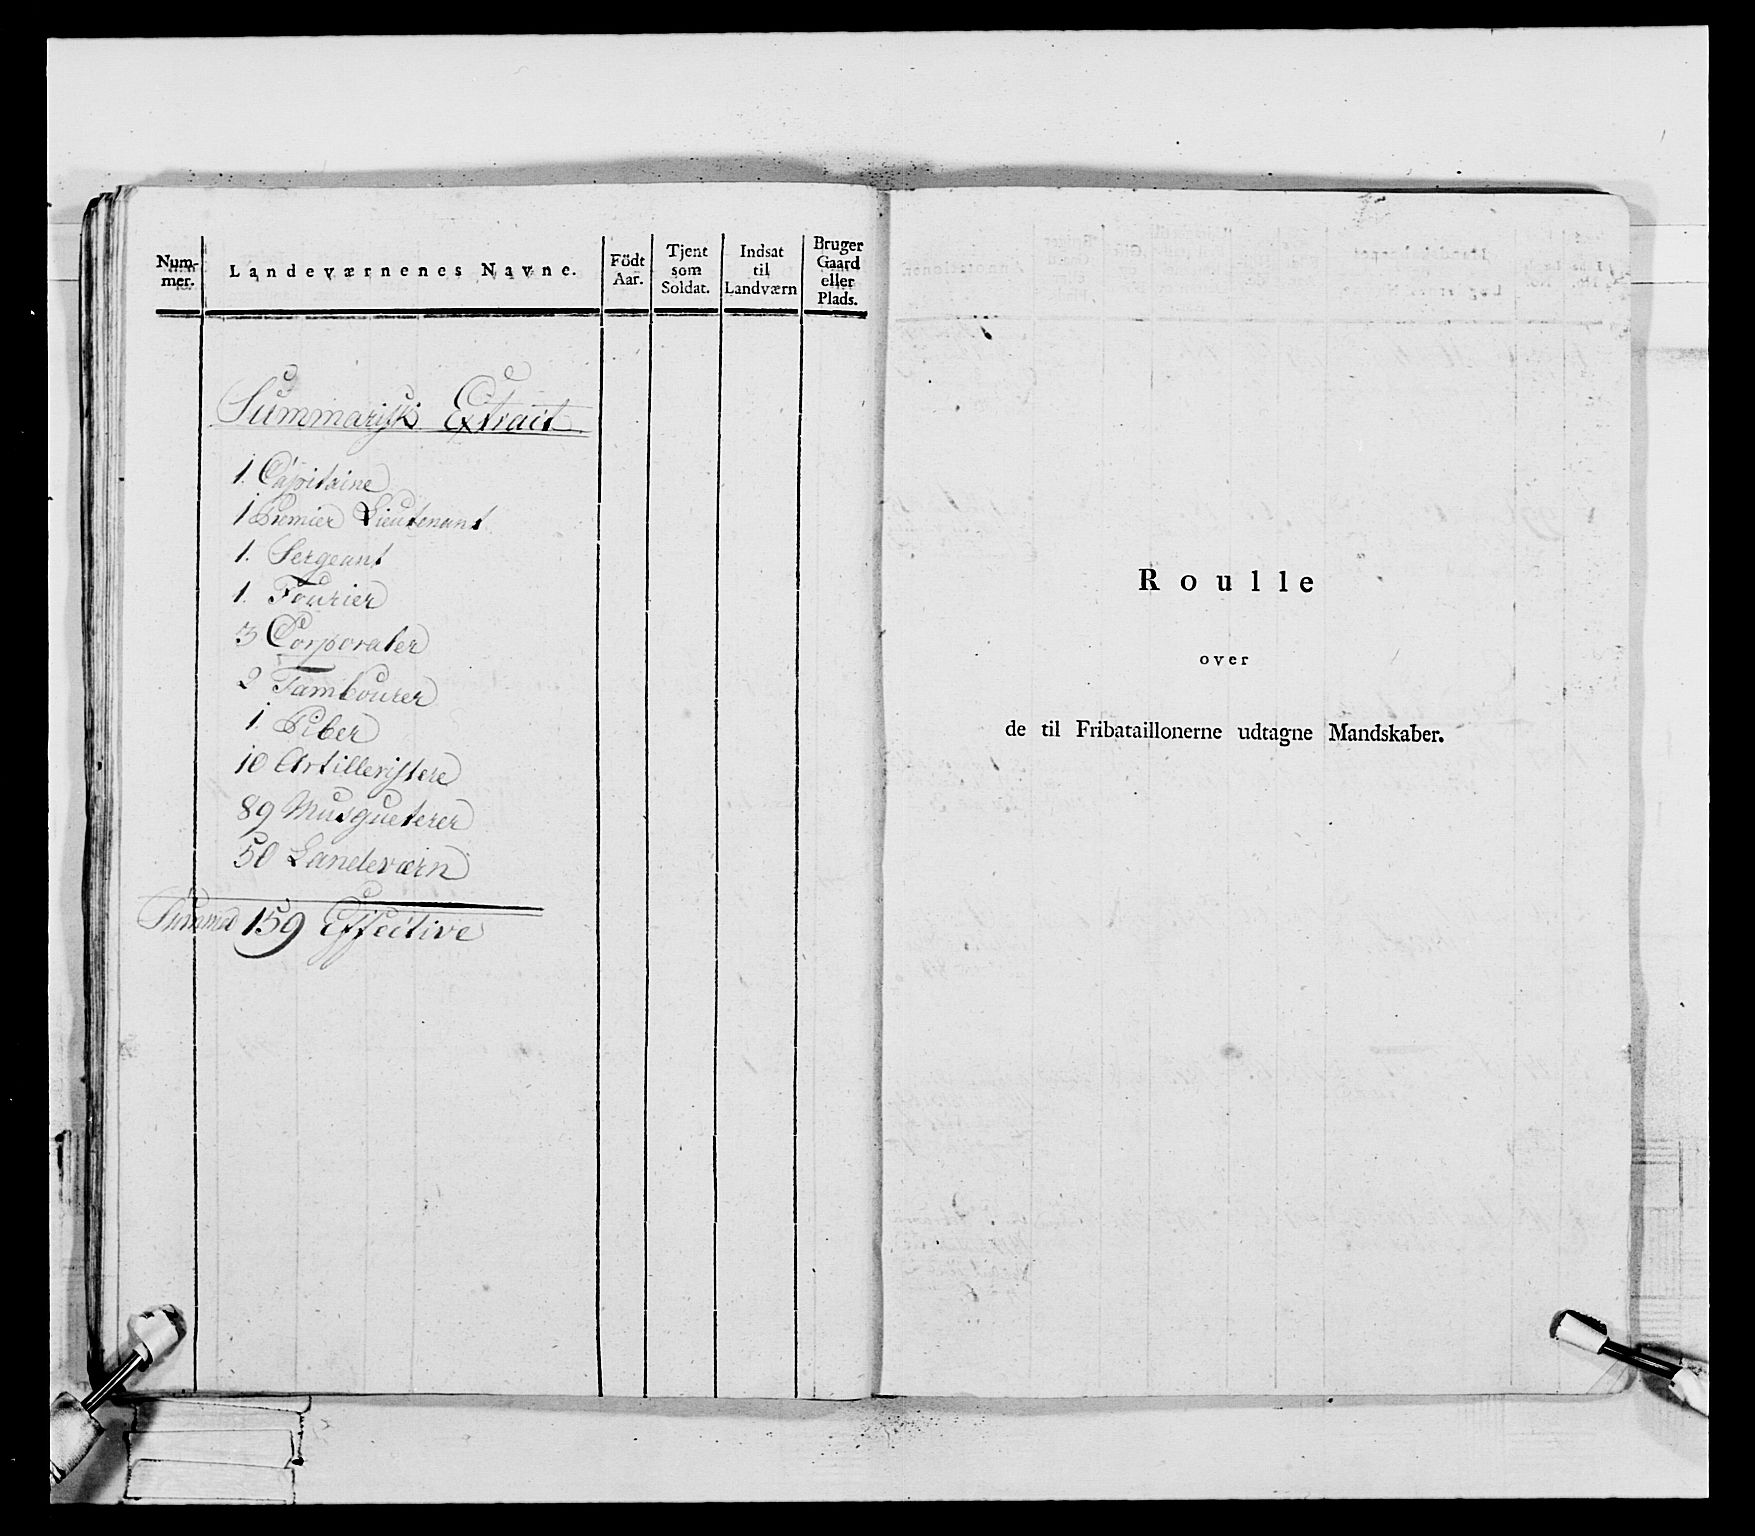 Num-
mer.
Landeværnenes Navne.
Födt
Aar.
Tjent
som
Soldat.
Indsat
til
Landværn
Bruger
Gaard
eller
Plads.
Summarisk Extract
1. Capitaine
1 Premier Lieutenant
1. Sergeant
1. Fourier
3 Corporaler
2 Tambourer
1. Piber
10 Artillerister
89 Musqueterer
50 Landeværn
Summa 159 Effective
Roulle
over
de til Fribataillonerne udtagne Mandskaber.